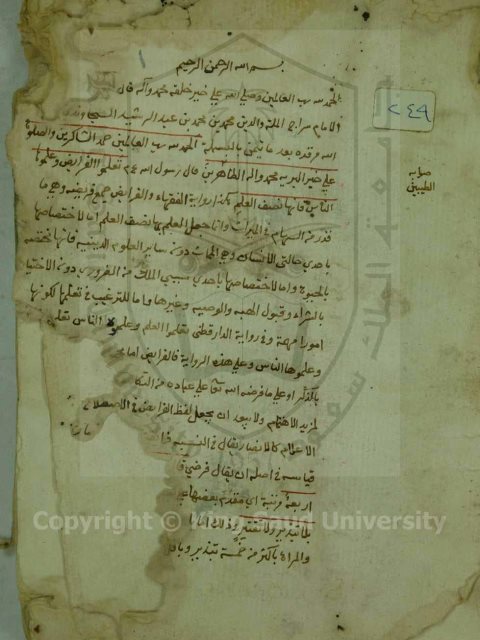 بسم الله الرحمن الرحيم
الحمد لله رب العالمين وصلى الله على خير خلقه محمد وآله قال
الامام سراج الملة والدين محمد بن محمد بن عبد الرشيد السجاوندي
الله مرقده بعد ما تيمن بالبسملة الحمد لله رب العالمين حمد الشاكرين والصلوة
على خير البريه محمد واله الطاهرين قال رسول الله عم تعلموا الفرايض وعلموا
الناس فانها نصف العلم كذا رواية الفقهاء والفرايض جمع فريضه وهي ما
قدر من السهام في الميراث وانما جعل العلم بها نصف العلم اما لاختصاصها
باحدى حالتي الانسان وهي الممات دون ساير العلوم الدينيه فانها مختصه
بالحيوة واما لاختصاصها باحدى سببي الملك من الضروري دون الاختيا
بالشراء وقبول الهبه والوصيه وغيرها واما للترغيب في تعلمها لكونها
امورا مهمة وفي رواية الدارقطني تعلموا العلم وعلموه الناس تعلموا
وعلموها الناس وعلى هذه الرواية فالفرايض اما
بالذكر او على ما فرضه الله تعا على عباده من التكا
لمزيد الاهتمام ولا يبعد ان يجعل لفظ الفرايض في الاصطلاح
الاعلام كالانصار يقال في النسبه
قياسه في اصله ان يقال فرضي
اربعة مرتبة اي مقدم بعضها
بلا تبذير ولا تقتير
والمراة باكثر من خمسة تبذير
صوابه
الطيبين
٢٤٩
١
Copyright © King Saud University